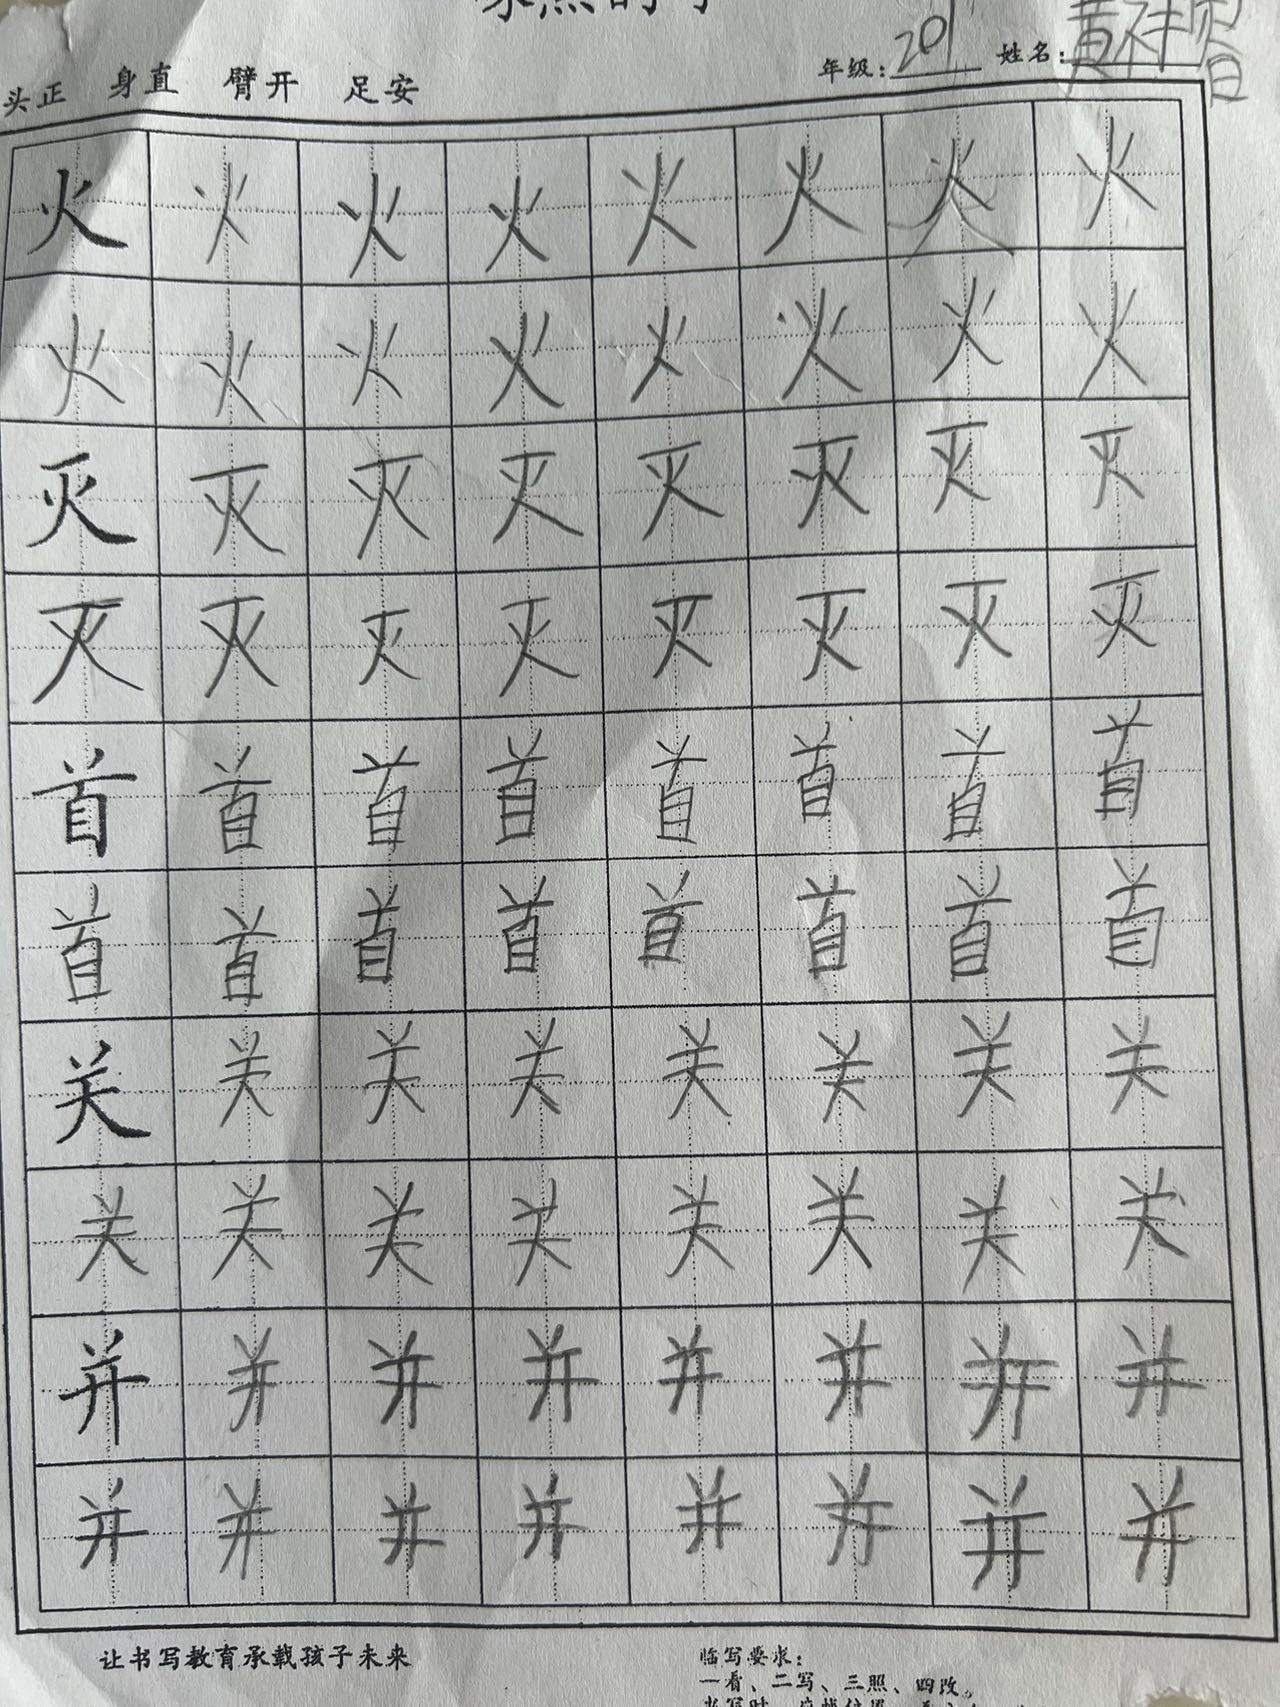 头正 身直 臂开 足安 年级:201 姓名:黄
火火火火火火火火
火火火火火火火火
灭灭灭灭灭灭灭灭
灭灭灭灭灭灭灭灭
首首首首首首首首
首首首首首首首首
关关关关关关关关
关关关关关关关关
并并并并并并并并
并并并并并并并并
让书写教育承载孩子未来
临写要求:
一看、二写、三照、四改。